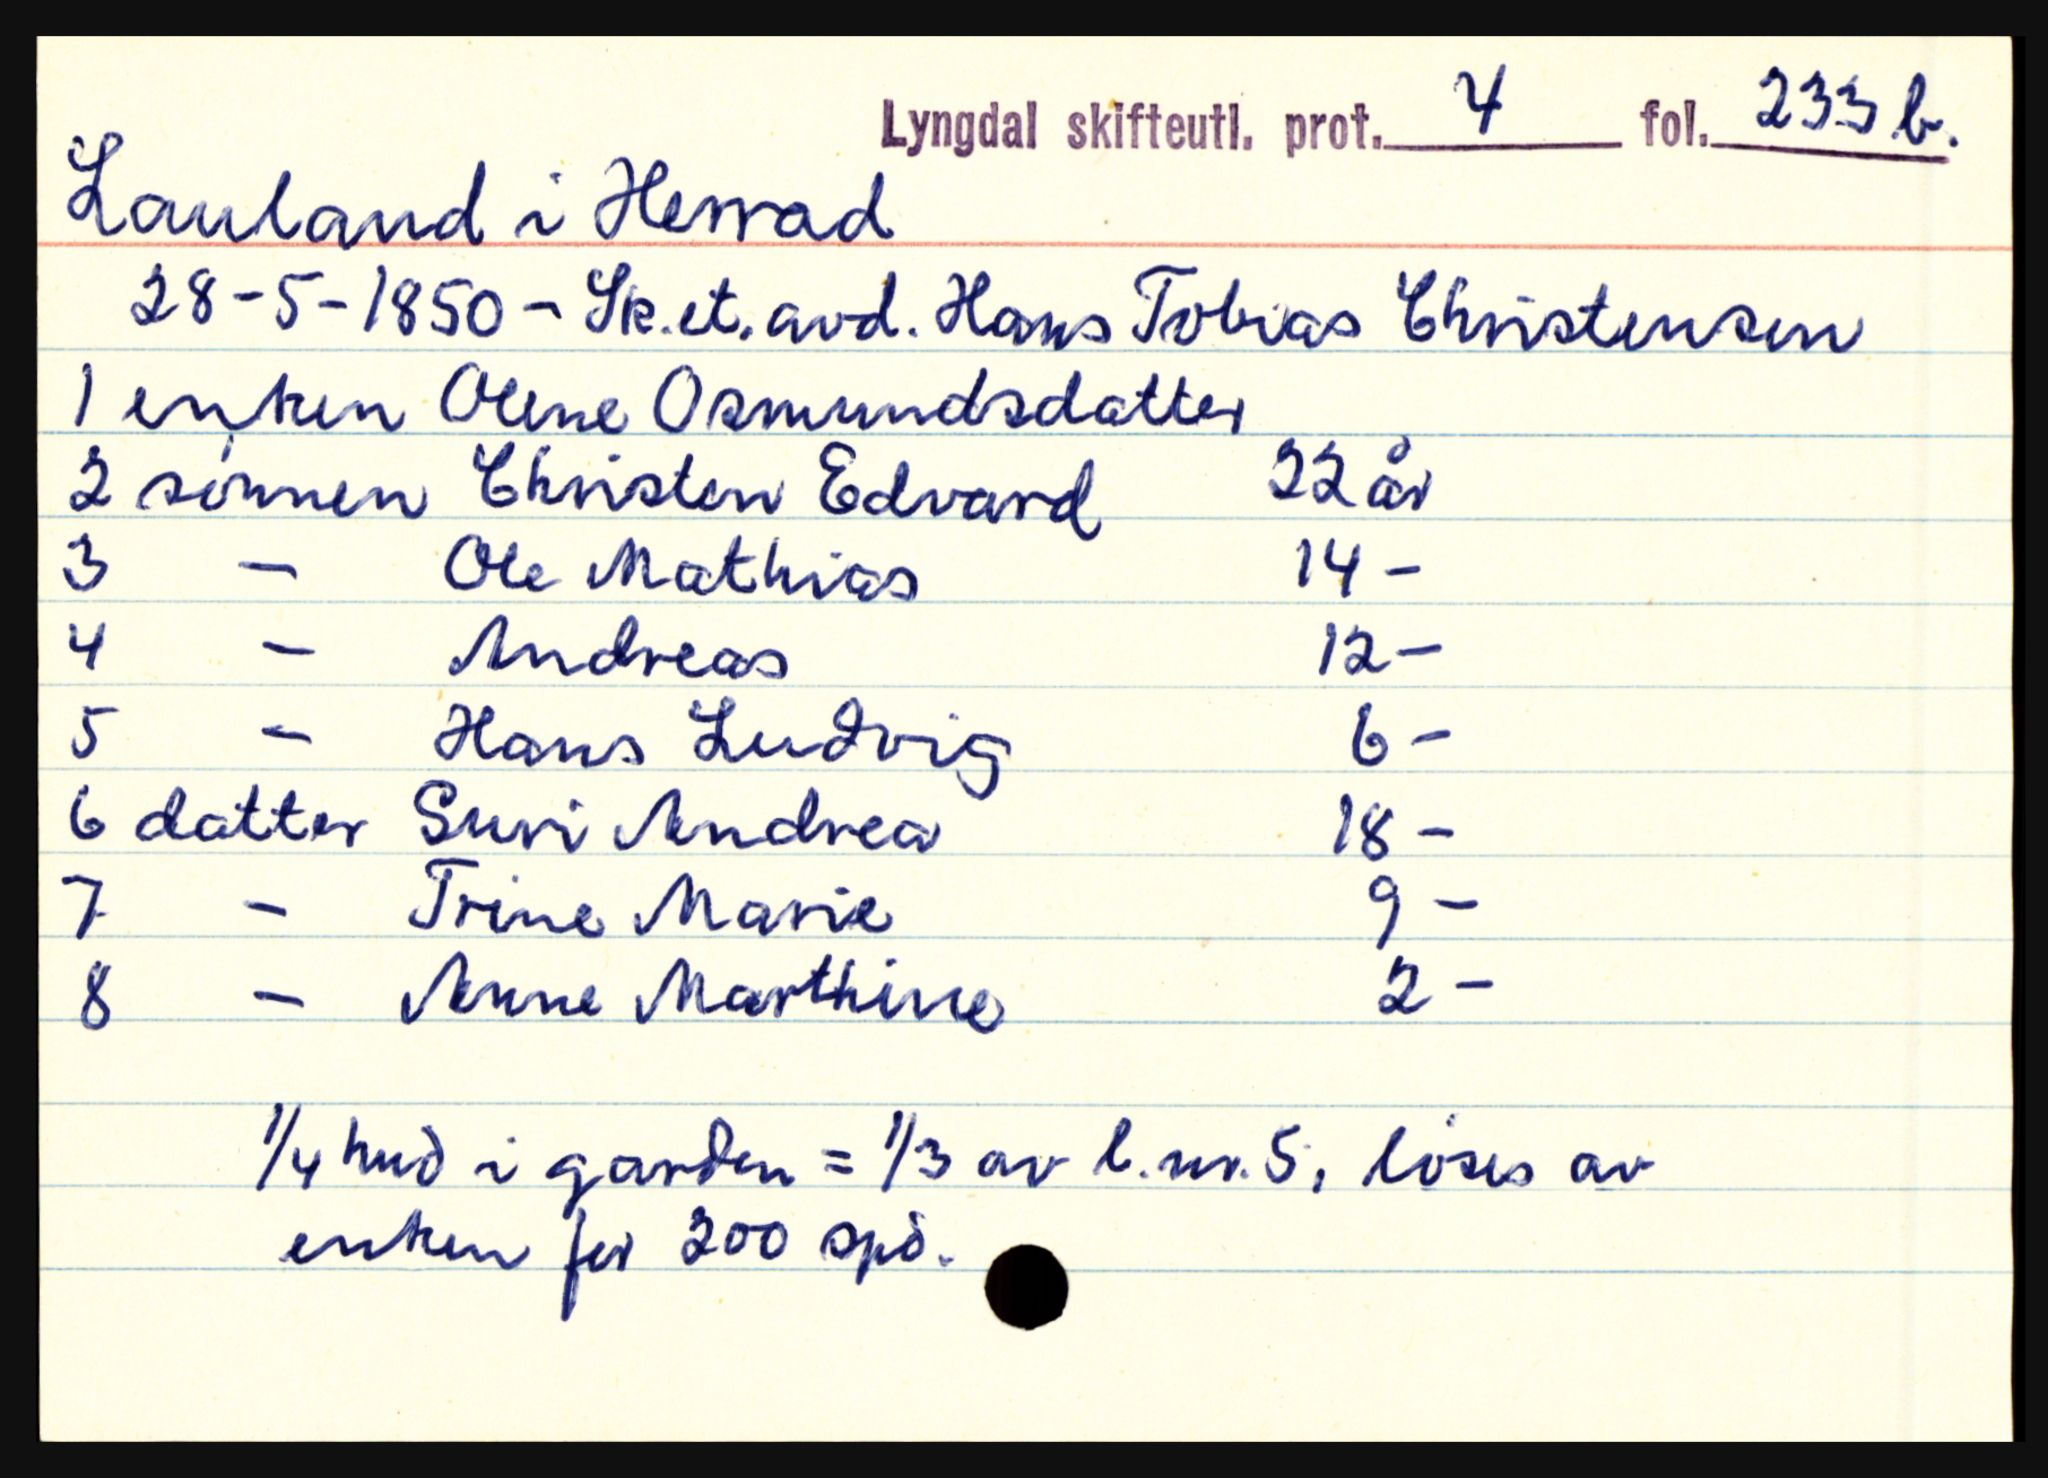 Lyngdal skifteutl. prot. 4 fol. 233 b.
Lauland i Herrad
28-5-1850 - Sk.et. avd. Hans Tobias Christensen
1 enken Olene Osmundsdatter
2 sønnen Christen Edvard 22 år
3 - Ole Mathias 14 -
4 - Andreas 12 -
5 - Hans Ludvig 6 -
6 datter Suri Andrea 18 -
7 - Trine Marie 9 -
8 - Anne Marthine 2 -
1/4 hud i garden = 1/3 av l.nr. 5, løses av
enken for 200 spd.